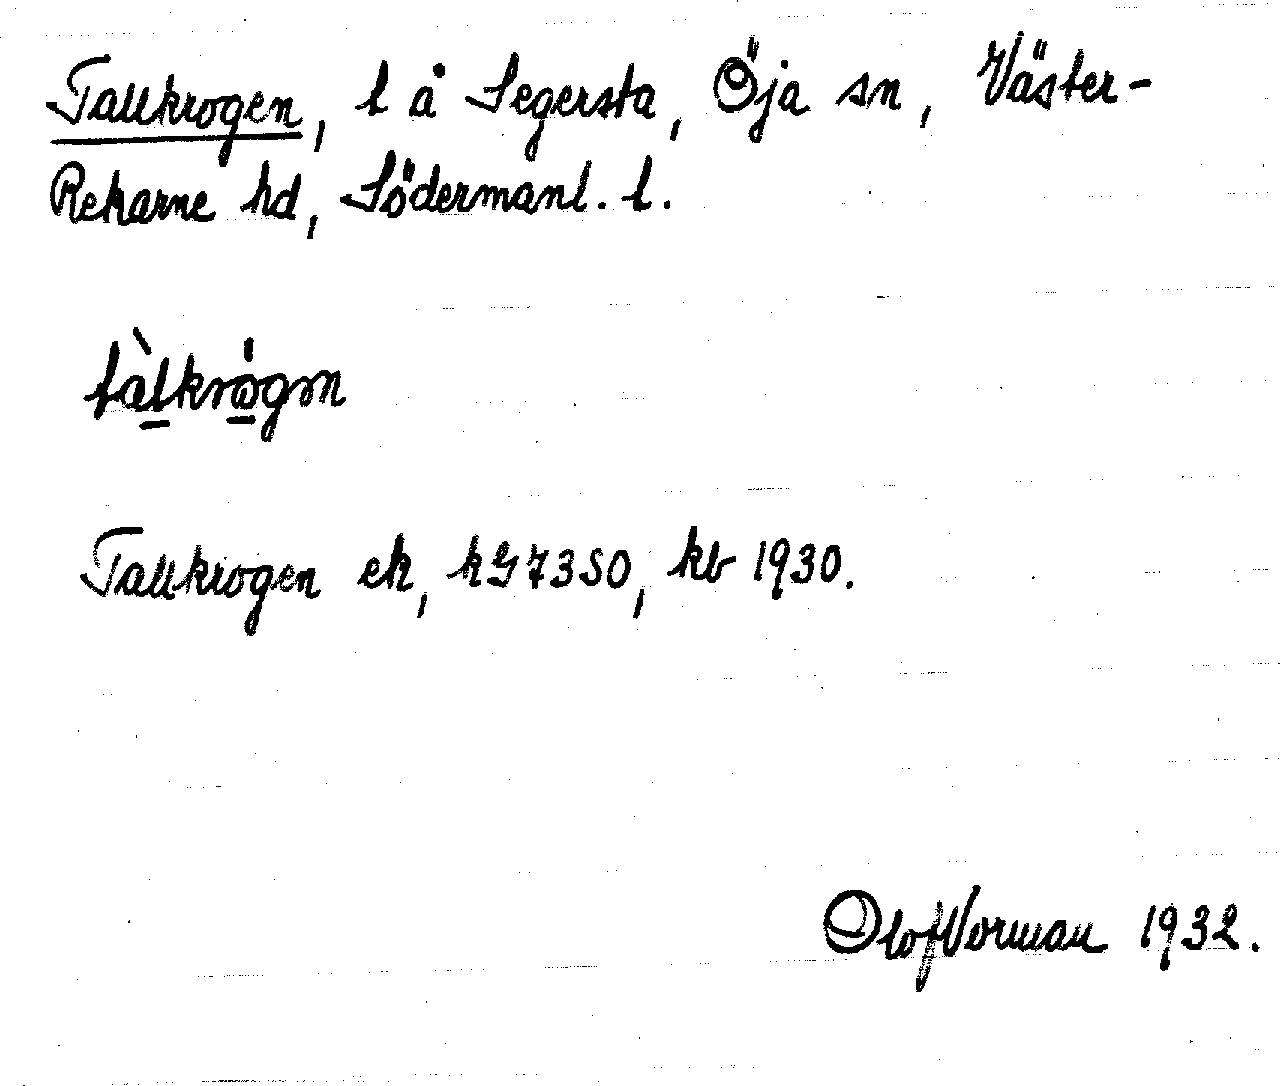 Tallkrogen, l å Segersta, Öja sn, Väster-
Rekarne hd, Södermanl. l.
tàlkrògm
Tallkrogen ek, kG7350, kb 1930.
Olof Vorman 1932.